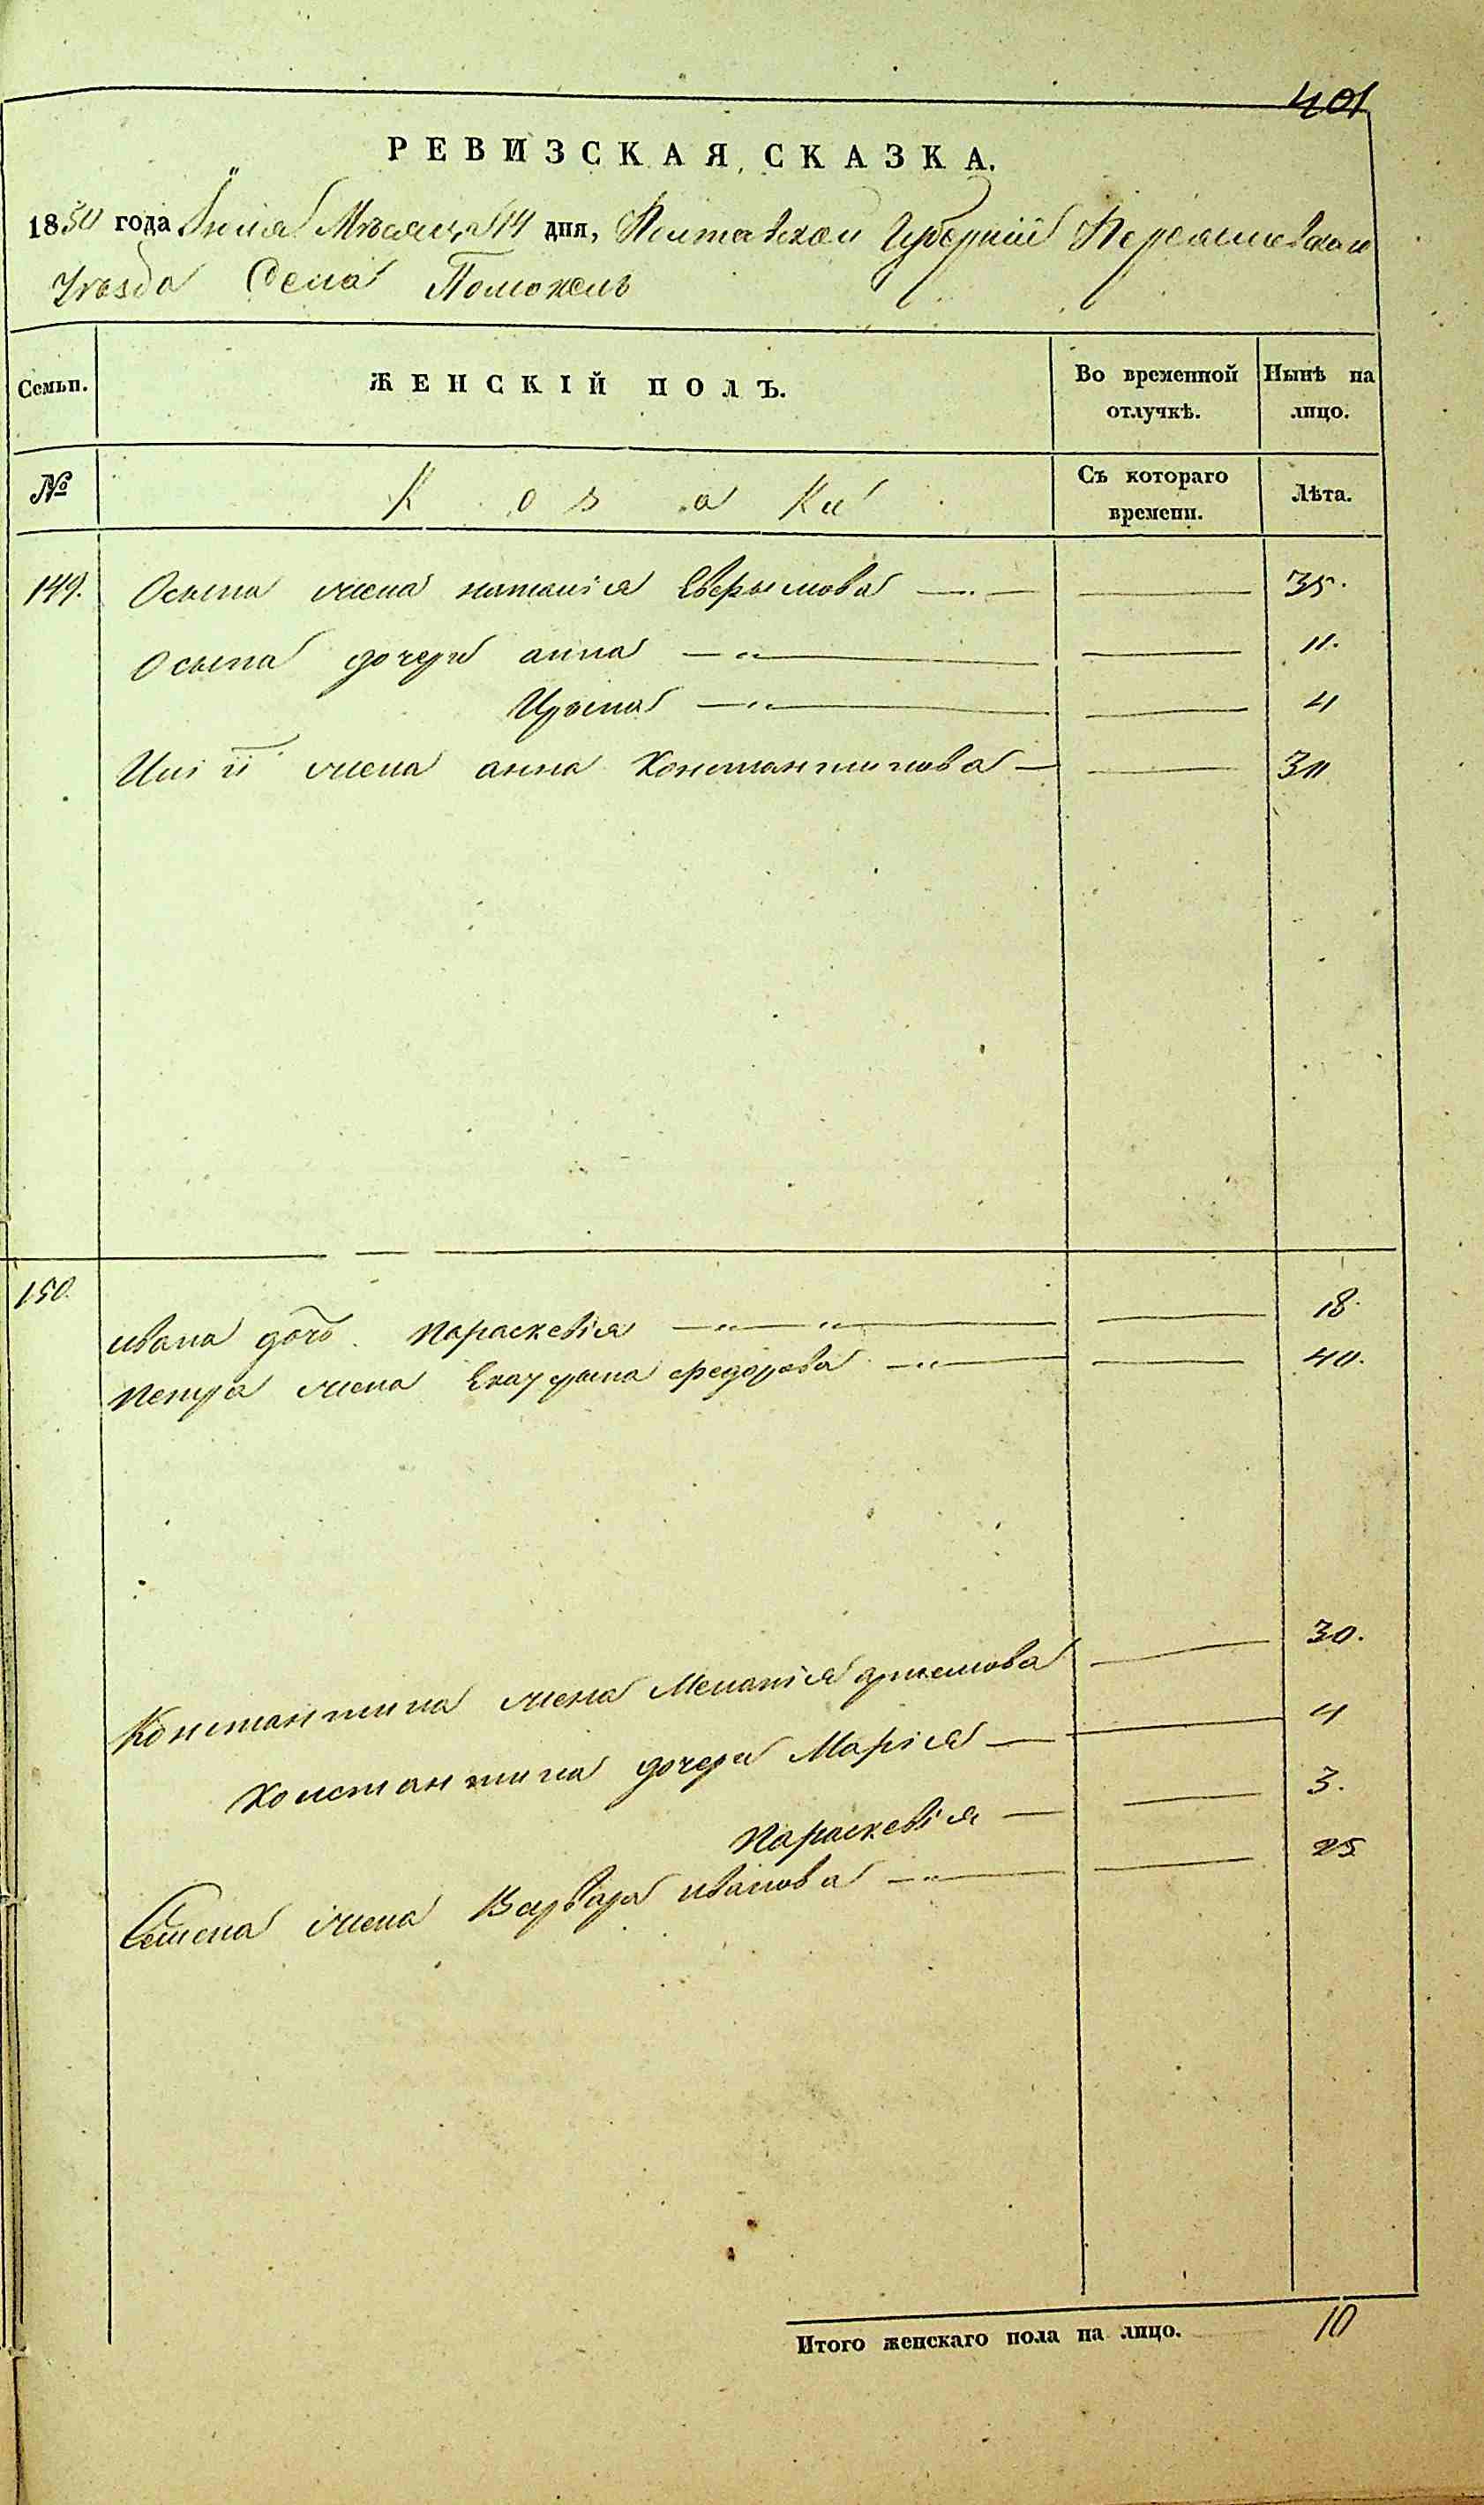 401
РЕВИЗСКАЯ СКАЗКА.
1850 года Юнія Мѣсяца 14 дня, Полтавской Губерніи Переяславскаго
Уезда Села Помоклъ
Семьи.
ЖЕНСКІЙ ПОЛЪ.
Во временной отлучкѣ.
Нынѣ на лицо.
№
Козаки
Съ котораго времени.
Лѣта.
149. Осыпа жена наталія Ефрымова 35.
Осыпа дочери анна 11.
Ирына 4
жена анна Константинова 30
150.
ивана дочь Параскевія 18.
Петра жена Екатерына федорова 40.
Константина жена Меланія артемова 30.
Константина дочери Марія 4
Параскевія 3.
Семена жена Варвара иванова 25
Итого женскаго пола на лицо. 10